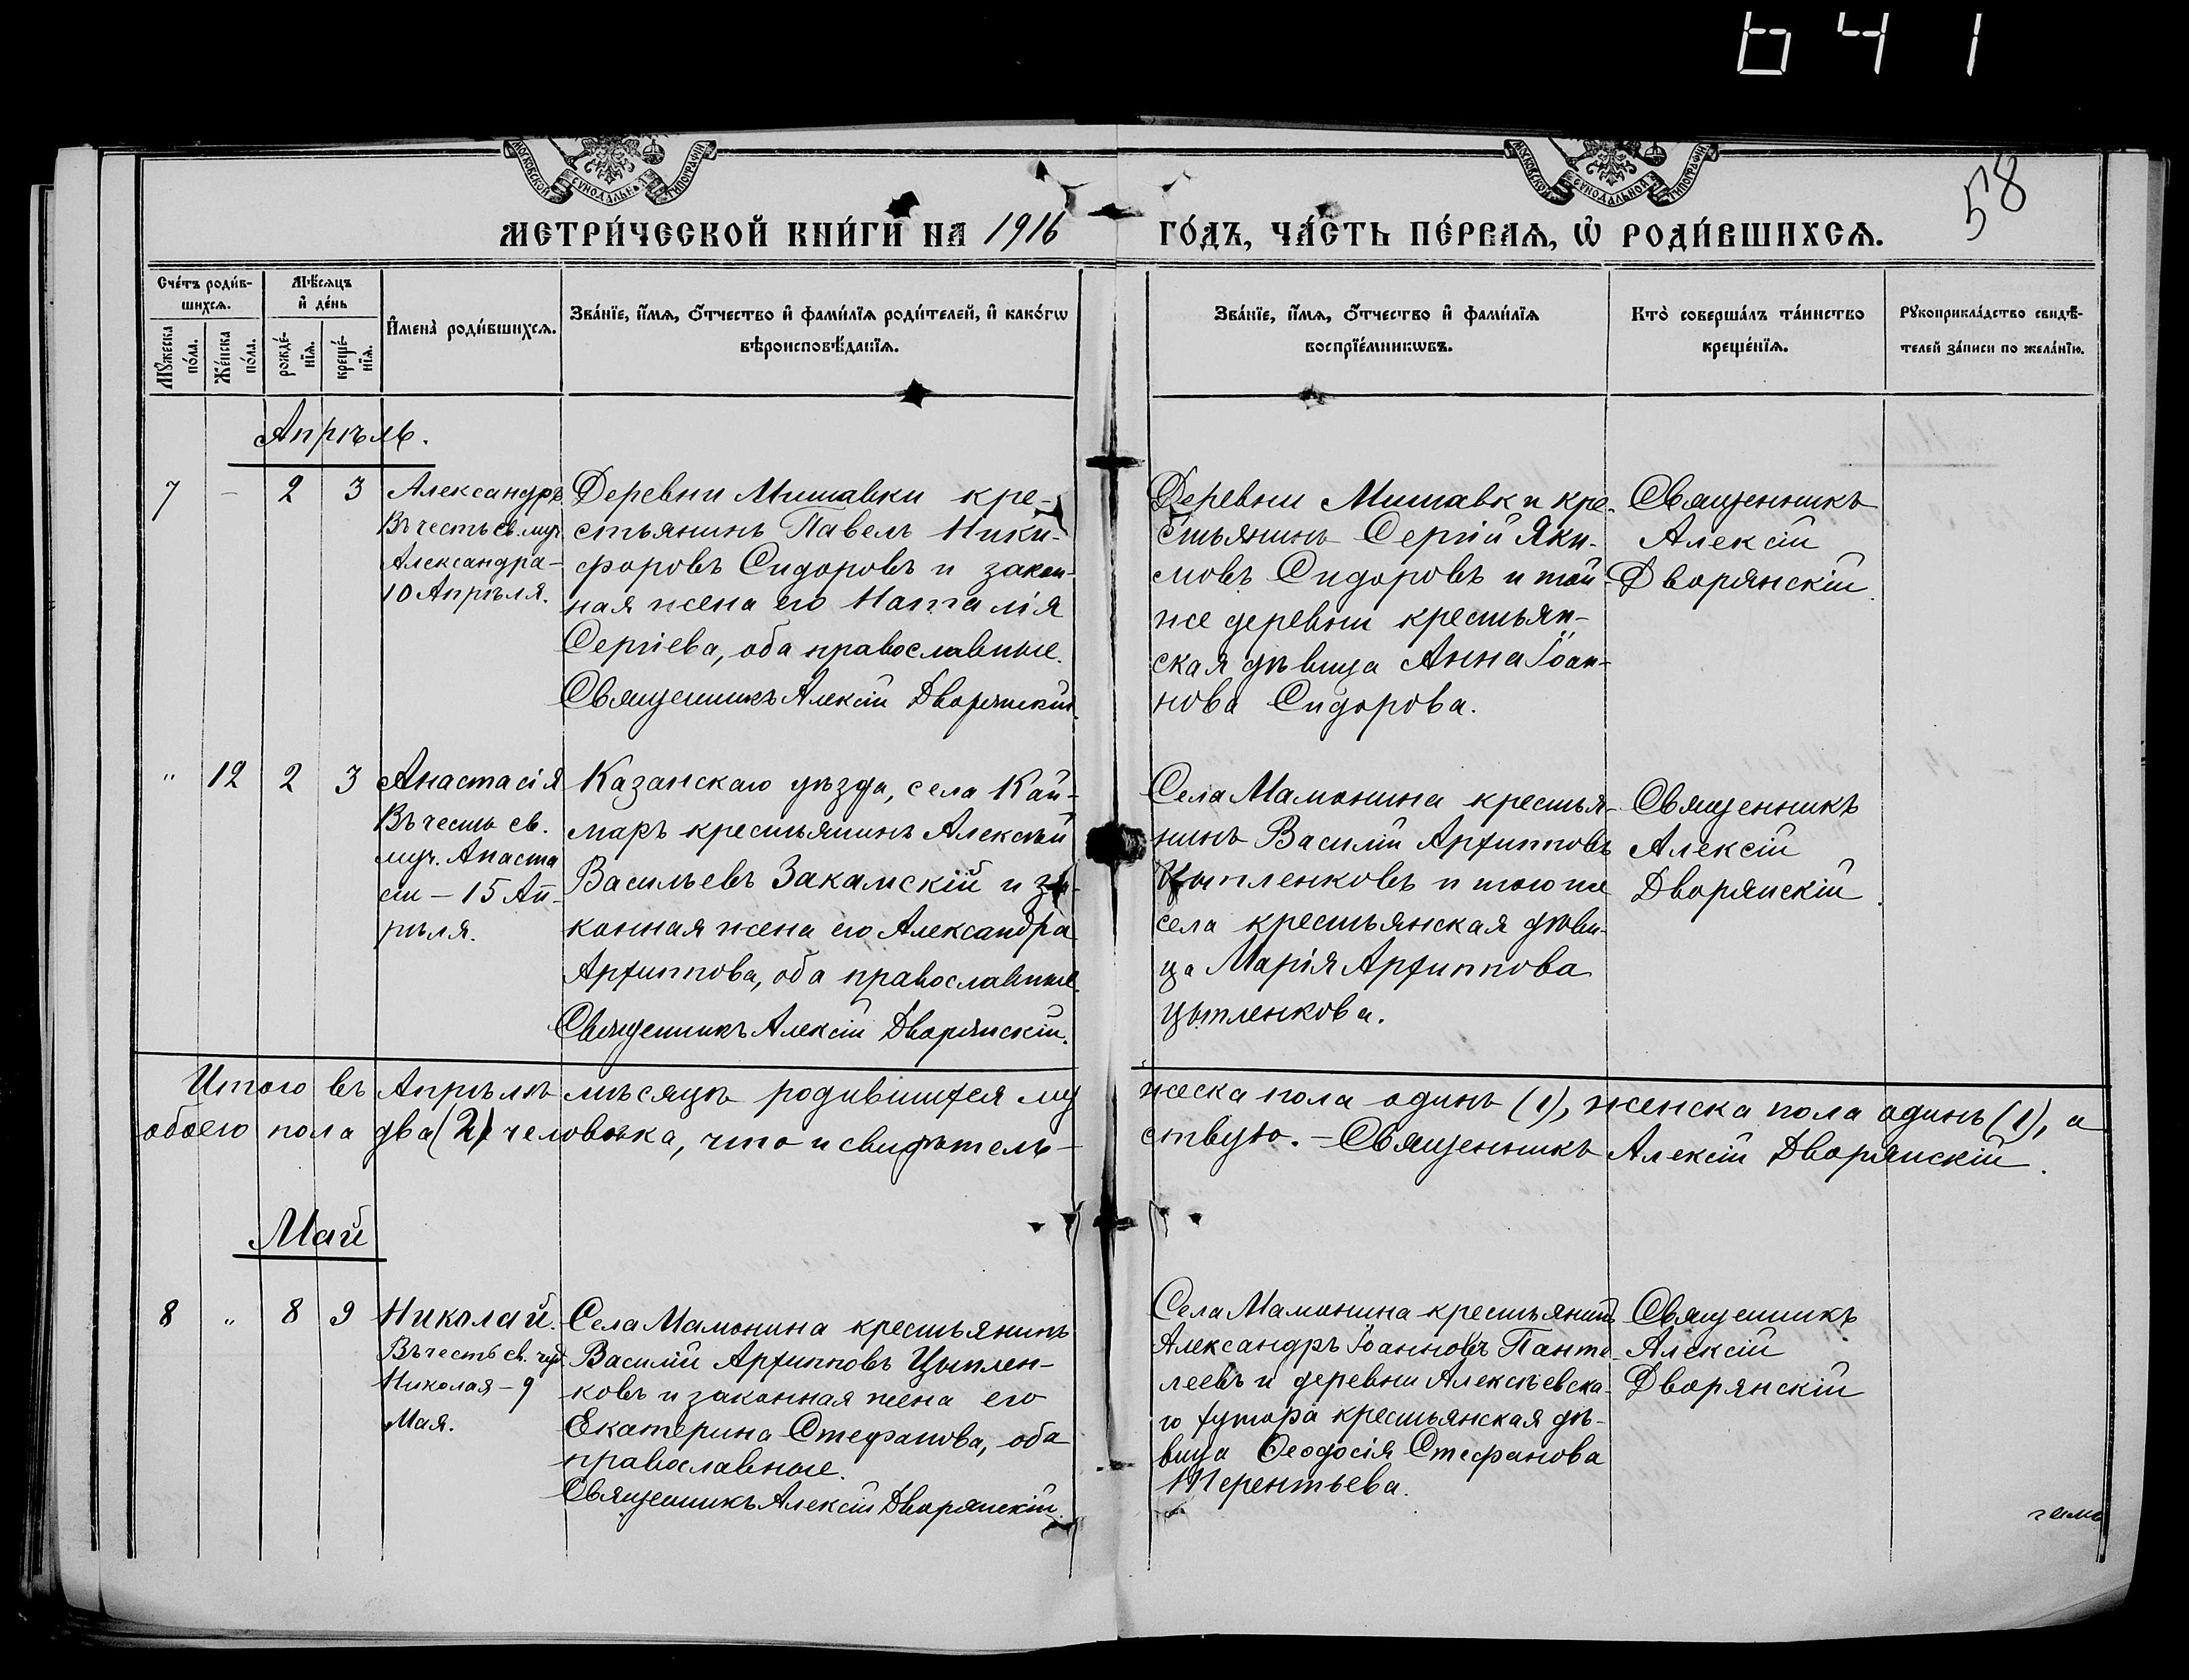 641
МОСКОВСКОЙ СѴНОДАЛЬНОЙ ТИПОГРАФІИ
МОСКОВСКОЙ СѴНОДАЛЬНОЙ ТИПОГРАФІИ
58
МЕТРИ́ЧЕСКОЙ КНИ́ГИ НА 1916 ГО́ДЪ, ЧА́СТЬ ПЕ́РВАѦ, Ѡ РОДИ́ВШИХСѦ.
Сче́тъ роди́в-
шихсѧ.
Мꙋ́жеска по́ла.
Же́нска по́ла.
Мѣ́сѧцъ
и҆ де́нь
рожде́-
нїѧ.
креще́-
нїѧ.
И҆мена̀ роди́вшихсѧ.
Зва́нїе, и҆́мѧ, ѻ҆́тчество и҆ фами́лїѧ роди́телей, и҆ како́гѡ
вѣроисповѣ́данїѧ.
Зва́нїе, и҆́мѧ, ѻ҆́тчество и҆ фами́лїѧ
воспрїе́мникѡвъ.
Кто̀ соверша́лъ та́инство
креще́нїѧ.
Рꙋкоприкла́дство свидѣ́-
телей за́писи по жела́нїю.
Апрѣль.
7 – 2 3
Александръ
Въ честь св. муч.
Александра –
10 Апрѣля.
Деревни Мишавки кре-
стьянинъ Павелъ Ники-
форовъ Сидоровъ и закон-
ная жена его Наталія
Сергіева, оба православные.
Священникъ Алексій Дворянскій.
Деревни Мишавки кре-
стьянинъ Сергій Яки-
мовъ Сидоровъ и той-
же деревни крестьян-
ская дѣвица Анна Іоан-
нова Сидорова.
Священникъ
Алексій
Дворянскій.
" 12 2 3
Анастасія
Въ честь св.
муч. Анаста
сіи – 15 Ап-
рѣля.
Казанскаго уѣзда, села Кай-
маръ крестьянинъ Алексѣй
Васильевъ Закамскій и за-
конная жена его Александра
Архиппова, оба православные.
Священникъ Алексій Дворянскій.
Села Мамонина крестья-
нинъ Василій Архипповъ
Цыпленковъ и того же
села крестьянская дѣви-
ца Марія Архиппова
Цыпленкова.
Священникъ
Алексій
Дворянскій.
Итого въ Апрѣлѣ мѣсяцѣ родившихся му жеска пола одинъ (1), женска пола одинъ (1), а
обоего пола два (2) человѣка, что и свидѣтель- ствую. – Священникъ Алексій Дворянскій.
Май
8 " 8 9
Николай.
Въ честь св. чуд.
Николая – 9
Мая.
Села Мамонина крестьянинъ
Василій Архипповъ Цыплен-
ковъ и законная жена его
Екатерина Стефанова, оба
православные.
Священникъ Алексій Дворянскій.
Села Мамонина крестьянинъ
Александръ Іоанновъ Панте-
леевъ и деревни Алексѣевска-
го хутора крестьянская дѣ-
вица Ѳеодосія Стефанова
Терентьева.
Священникъ
Алексій
Дворянскій